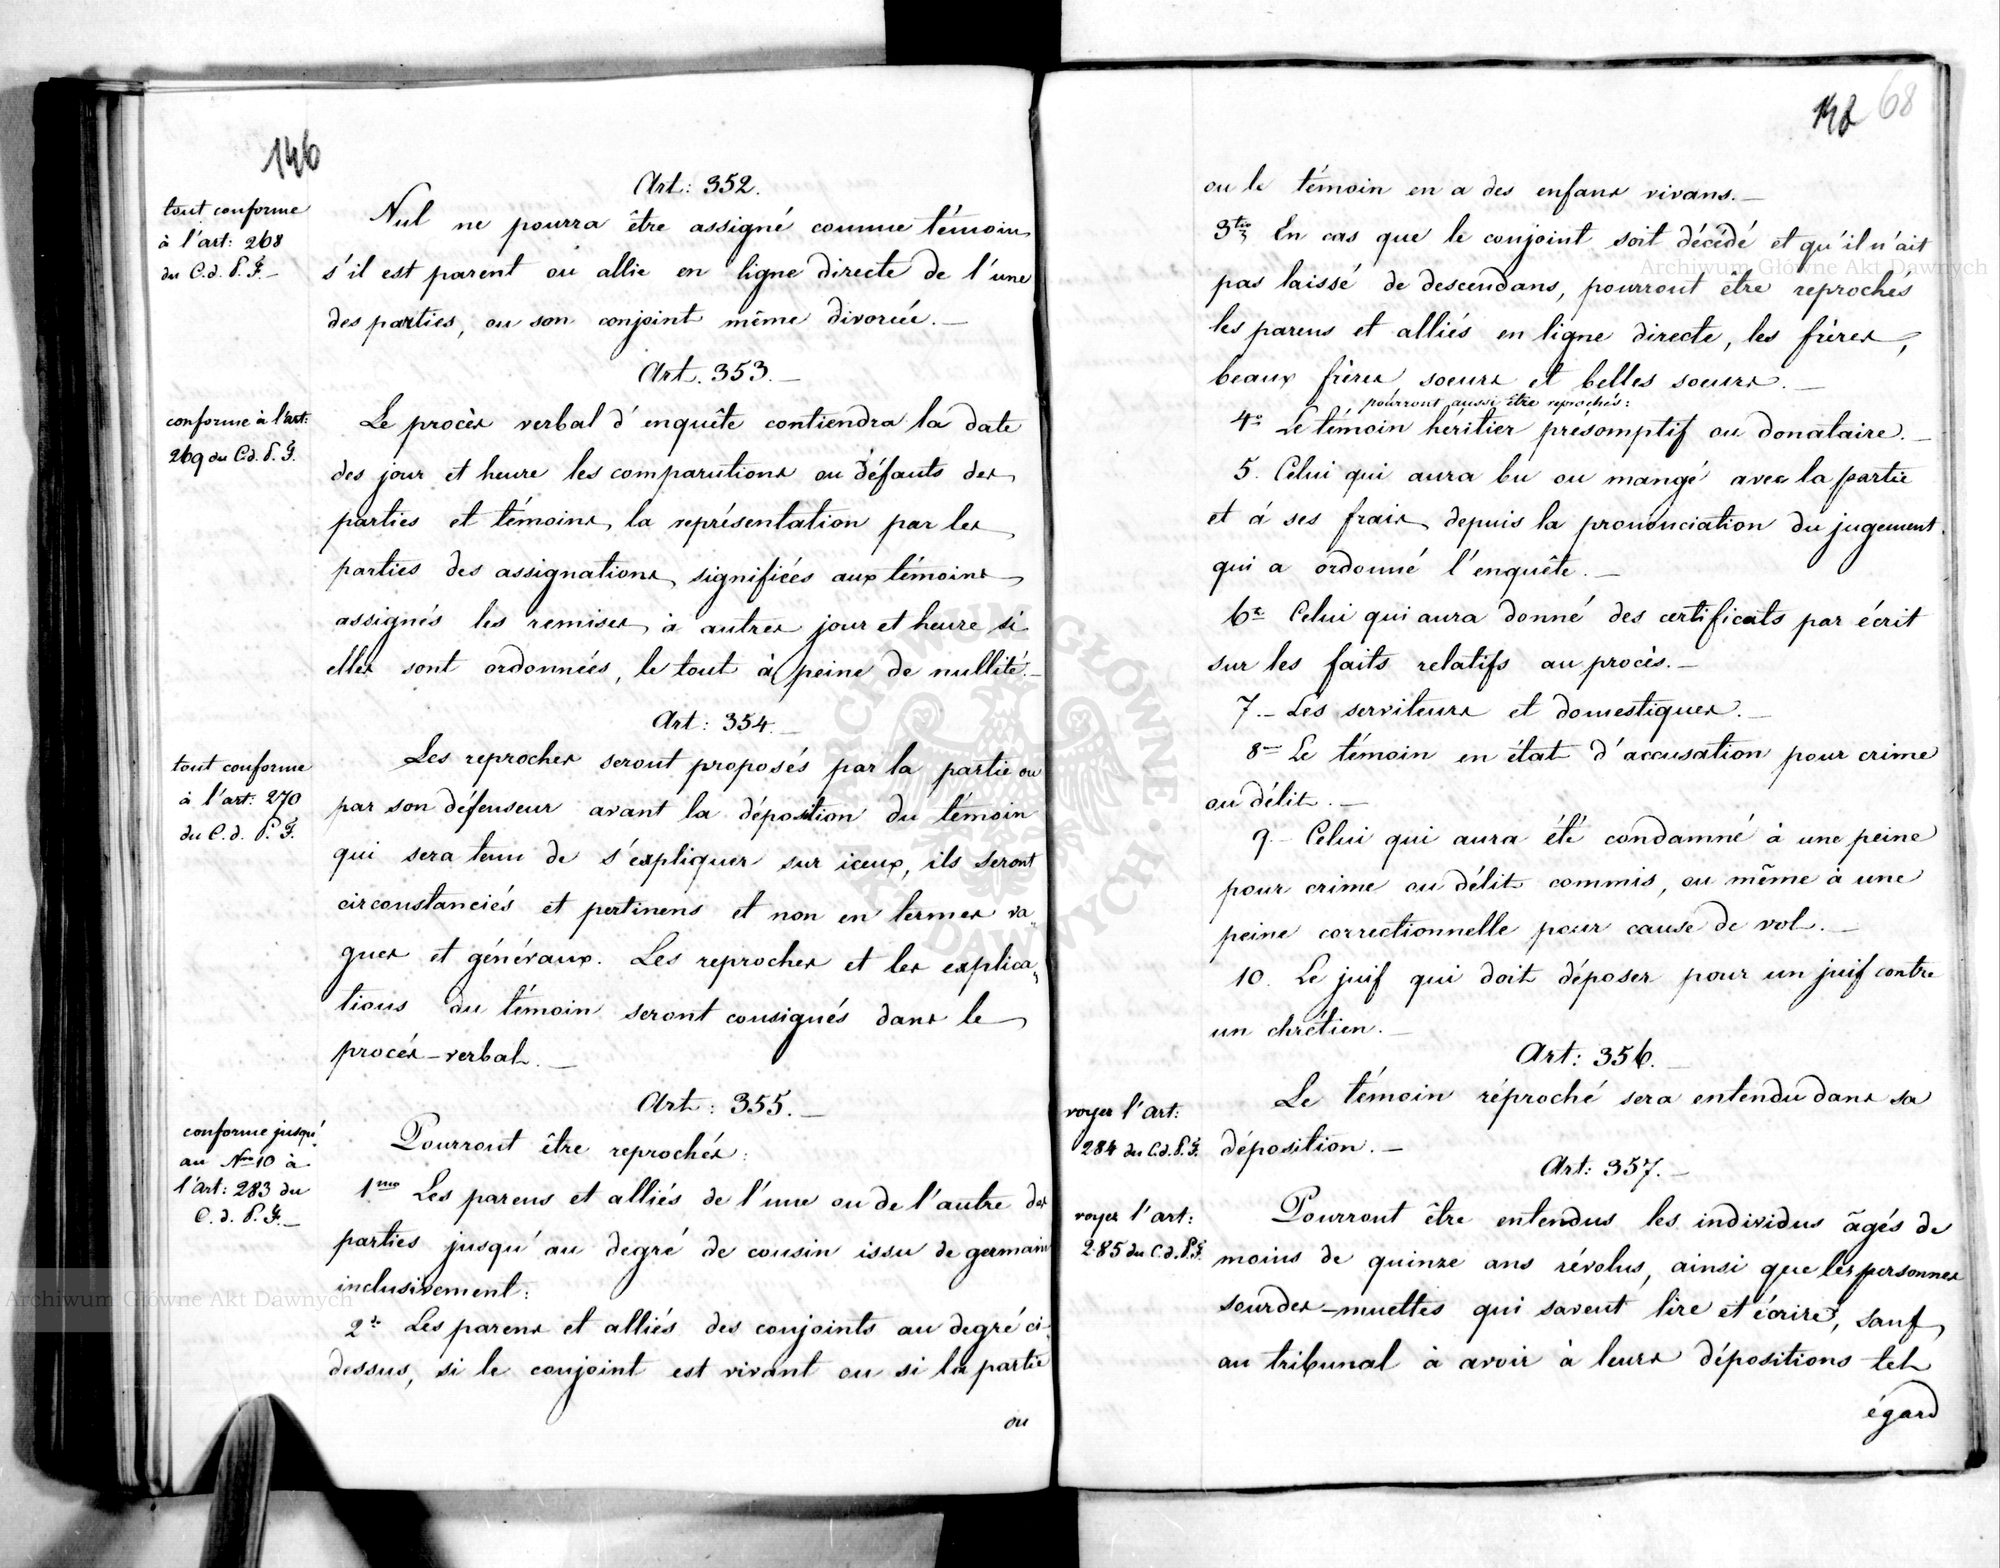 146
Art: 352.
tout conforme
à l'art: 268
du C. d. P. F.—
Nul ne pourra être assigné comme témoin
s'il est parent ou allie en ligne directe de l'une
des parties, ou son conjoint même divorcée.—
Art. 353.—
conforme à l'art:
269 du C.d. P. F.
Le procès verbal d'enquête contiendra la date
des jour et heure les comparutions ou défauts des
parties et témoins, la représentation par les
parties des assignations, signifiées aux témoins
assignés les remises à autres jour et heure si
elles sont ordonnées, le tout à peine de nullité.—
Art: 354.—
tout conforme
à l'art: 270
du C. d. P. F.
Les reproches seront proposés par la partie ou
par son défenseur avant la déposition du témoin
qui sera tenu de s'expliquer sur iceux, ils seront
circonstanciés et pertinens et non en termes va„
gues et généraux. Les reproches et les explica„
tions du témoin seront consignés dans le
procès-verbal.—
Art: 355.—
conforme jusqu'
au Nro 10 à
l'Art: 283 du
C. d. P. F.—
Pourront être reprochés:
1mo Les parens et alliés de l'une ou de l'autre des
parties jusqu'au degré de cousin issu de germain
inclusivement:
2do Les parens et alliés des conjoints au degré ci
dessus, si le conjoint est vivant ou si la partie
ou
148 68
ou le témoin en a des enfans vivans.—
3tio En cas que le conjoint soit décédé et qu'il n'ait
pas laissé de descendans, pourront être reprochés
les parens et alliés en ligne directe, les frères,
beaux frères, soeurs et belles soeurs.—
pourront aussi être reprochés:
4o Le témoin héritier présomptif ou donataire.—
5. Celui qui aura bu ou mangé avec la partie
et à ses frais, depuis la prononciation du jugement
qui a ordonné l'enquête.—
6to Celui qui aura donné des certificats par écrit
sur les faits relatifs au procès.—
7.— Les serviteurs et domestiques.—
8vo Le témoin en état d'accusation pour crime
ou délit.—
9.— Celui qui aura été condamné à une peine
pour crime ou délit commis, ou même à une
peine correctionnelle pour cause de vol.—
10. Le juif qui doit déposer pour un juif contre
un chrétien.—
Art: 356.—
voyez l'Art:
284 du C.d.P.F.
Le témoin réproché sera entendu dans sa
déposition.—
Art: 357.—
voyez l'art:
285 du C.d.P.F.
Pourront être entendus les individus âgés de
moins de quinze ans révolus, ainsi que les personnes
sourdes-muettes qui savent lire et écrire, sauf
au tribunal à avoir à leurs dépositions tel
égard
Archiwum Główne Akt Dawnych
Archiwum Główne Akt Dawnych
ARCHIWUM GŁÓWNE AKT DAWNYCH